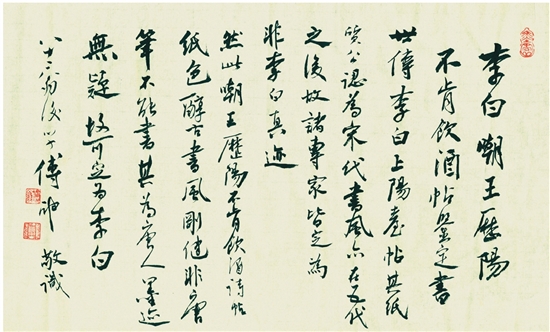 李白嘲王歷陽
不肯飲酒帖鑒定書
世傳李白上陽臺帖其紙
質公認為宋代書風亦在五代
之後故諸專家皆定為
非李白真迹
然此嘲王歷陽不肯飲酒詩帖
紙色醇古書風剛健非唐
筆不能書其為唐人墨迹
無疑故可定為李白
八十二翁後學傅申敬識